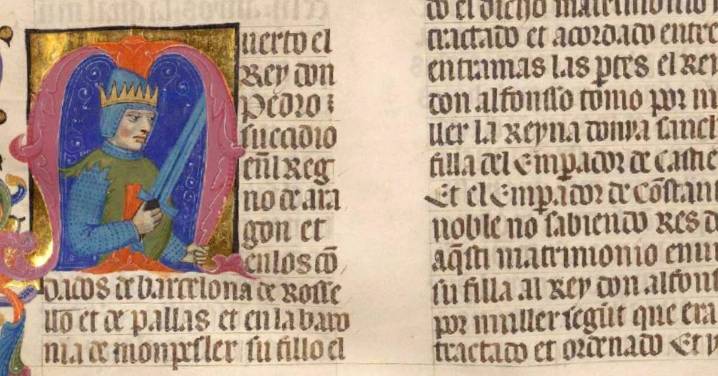 Muerto el
Rey don
Pedro ⁊
succidio
en el Reg
no de ara
gon et
en los cō
dados de barcelona de Rosse
llo et de pallas et en la baro
nia de monpesler su fillo el
do el dicho matrimonio
tractado et acordado entre
entramas las ptes el Rei
don alfonsso como por m
uer la Reyna donya sanch
filla del Emꝑador de castie
Et el Emꝑador de cōstan
noble no sabiendo Res d
aq̄sti matrimonio enui
su filla al Rey don alfons
por muller segūt que era
tractado et ordenado Et